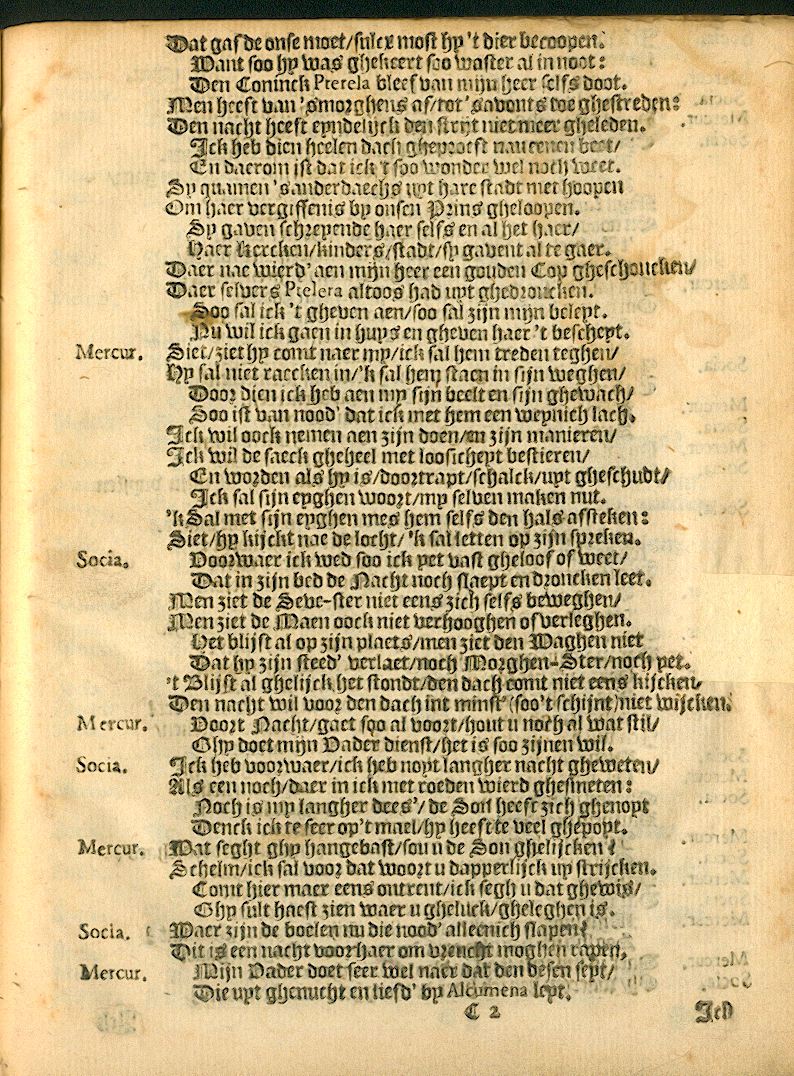 Dat gaf de onse moet/sulcx most hy 't dier becoopen.
Want soo hy was ghekeert soo waster al in noot:
Den Coninck Pterela bleef van mijn heer selfs doot.
Men heeft van 'smorghens af/tot 'savonts toe ghestreden:
Den nacht heeft eyndelijck den strijt niet meer gheleden.
Ick heb dien heelen dach gheproeft nau eenen beet/
En daerom ist dat ick 't soo wonder wel noch weet.
Sy quamen 'sanderdaechs uyt hare stadt met hoopen
Om haer vergiffenis by onsen Prins gheloopen.
Sy gaven schreyende haer selfs en al het haer/
Haer kercken/kinders/stadt/sy gavent al te gaer.
Daer nae wierd' aen mijn heer een gouden Cop gheschoncken/
Daer selvers Ptelera altoos had uyt ghedroncken.
Soo sal ick 't gheven aen/soo sal zijn mijn beleyt.
Nu wil ick gaen in huys en gheven haer 't bescheyt.
Mercur. Siet/ziet hy comt naer my/ick sal hem treden teghen/
Hy sal niet raecken in/'k sal hem staen in sijn weghen/
Door dien ick heb aen my sijn beelt en sijn ghewach/
Soo ist van nood' dat ick met hem een weynich lach.
Ick wil oock nemen aen zijn doen/en zijn manieren/
Ick wil de saeck gheheel met loosicheyt bestieren/
En worden als hy is/doortrapt/schalck/uyt gheschudt/
Ick sal sijn eyghen woort/my selven maken nut.
'k Sal met sijn eyghen mes hem selfs den hals afsteken:
Siet/hy kijckt nae de locht/'k sal letten op zijn spreken.
Socia. Voorwaer ick wed soo ick yet vast gheloof of weet/
Dat in zijn bed de Nacht noch slaept en droncken leet.
Men ziet de Seve-ster niet eens zich selfs beweghen/
Men ziet de Maen oock niet verhooghen of verleghen.
Het blijft al op zijn plaets/men ziet den Waghen niet
Dat hy zijn steed' verlaet/noch Morghen-Ster/noch yet.
't Blijft al ghelijck het stondt/den dach comt niet eens kijcken/
Den nacht wil voor den dach int minst (soo't schijnt) niet wijcken.
Mercur. Voort Nacht/gaet soo al voort/hout u noch al wat stil/
Ghy doet mijn Vader dienst/het is soo zijnen wil.
Socia. Ick heb voorwaer/ick heb noyt langher nacht gheweten/
Als een noch/daer in ick met roeden wierd ghesmeten:
Noch is my langher dees'/de Son heeft zich ghenopt
Denck ick te seer op't mael/hy heeft te veel ghepopt.
Mercur. Wat seght ghy hangebast/sou u de Son ghelijcken?
Schelm/ick sal voor dat woort u dapperlijck up strijcken.
Comt hier maer eens ontrent/ick segh u dat ghewis/
Ghy sult haest zien waer u gheluck/gheleghen is.
Socia. Waer zijn de boelen nu die nood' alleenich slapen?
Dit is een nacht voor haer om vreucht moghen rapen.
Mercur. Mijn Vader doet seer wel naer dat den desen seyt/
Die uyt ghenucht en liefd' by Alcumena leyt.
C 2 Ick